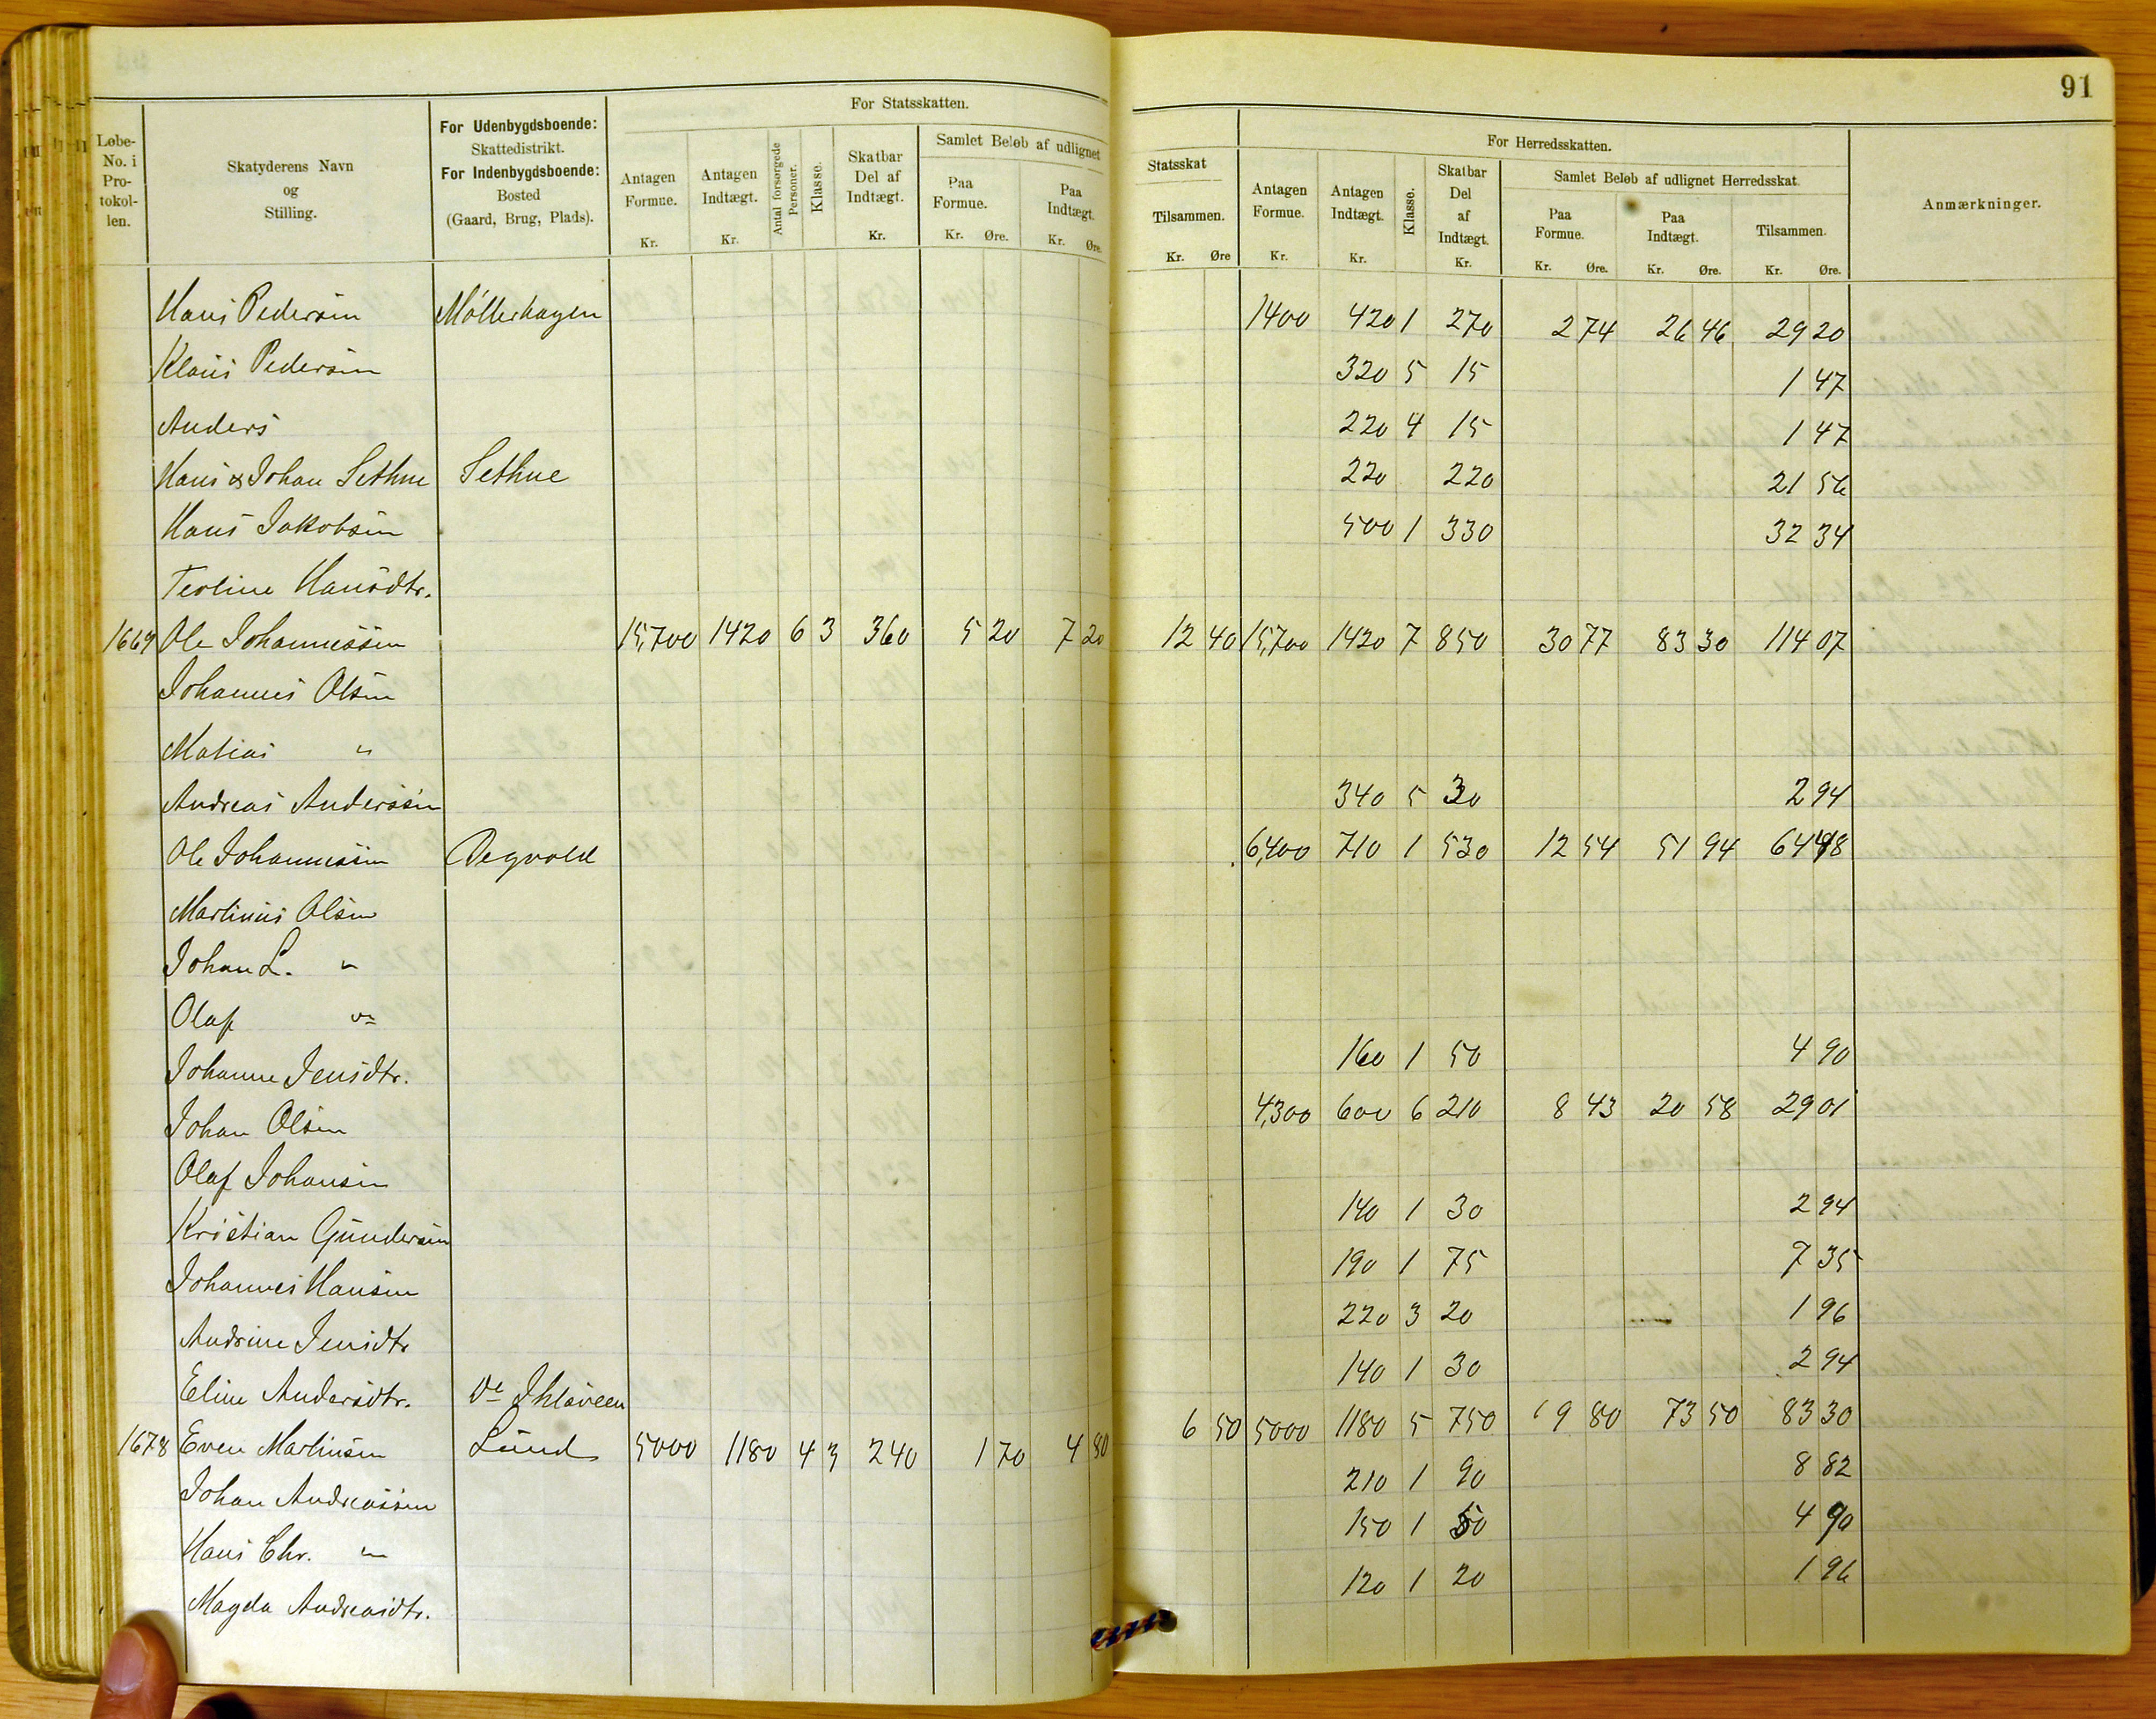 91
For Statsskatten.
Løbe-No. i Pro-tokol-len.
Skatyderens Navn og Stilling.
For Udenbygdsboende: Skattedistrikt. For Indenbygdsboende: Bosted (Gaard, Brug, Plads).
Antagen Formue. Kr.
Antagen Indtægt. Kr.
Antal forsørgede Personer.
Klasse.
Skatbar Del af Indtægt. Kr.
Samlet Beløb af udlignet
Paa Formue. Kr. Øre.
Paa Indtægt. Kr. Øre.
Statsskat
Tilsammen. Kr. Øre
For Herredsskatten.
Antagen Formue. Kr.
Antagen Indtægt. Kr.
Klasse.
Skatbar Del af Indtægt. Kr.
Samlet Beløb af udlignet Herredsskat.
Paa Formue. Kr. Øre.
Paa Indtægt. Kr. Øre.
Tilsammen. Kr. Øre.
Anmærkninger.
Hans Pedersen Möllerhagen 1400 420 1 270 2 74 26 46 29 20
Klaus Pedersen 320 5 15 1 47
Anders 220 4 15 1 47
Hans & Johan Sethne Sethne 220 220 21 56
Hans Jakobsen 500 1 330 32 34
Teoline Hansdtr.
1669 Ole Johannessen 15,700 1420 6 3 360 5 20 7 20 12 40 15,700 1420 7 850 30 77 83 30 114 07
Johannes Olsen
Matias "
Andreas Anderssen 340 5 30 2 94
Ole Johannessen Degvold 6,400 710 1 530 12 54 51 94 64 48
Martinius Olsen
Johan L. "
Olaf "
Johanne Jensdtr. 160 1 50 4 90
Johan Olsen 4,300 600 6 210 8 43 20 58 29 01
Olaf Johansen
Kristian Gundersen 140 1 30 2 94
Johannes Hansen 190 1 75 7 35
Andrine Jensdtr 220 3 20 1 96
Eline Andersdtr. 140 1 30 2 94
1678 Even Martinsen Lund 5000 1180 4 3 240 1 70 4 80 6 50 5000 1180 5 750 9 80 73 50 83 30
Johan Andreassen 210 1 90 8 82
Hans Chr. " 150 1 50 4 90
Magda Andreasdtr. 120 1 20 1 96